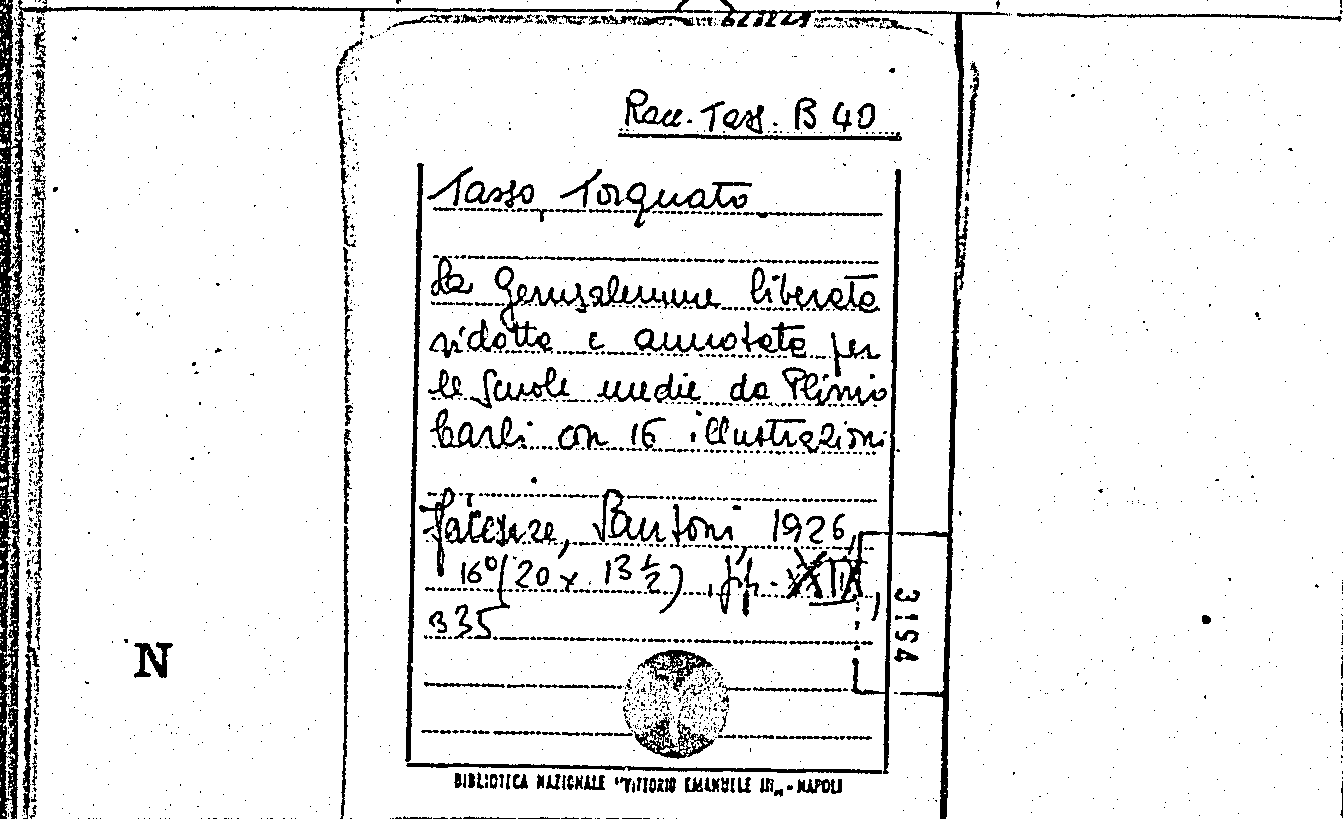 Racc. Tass. B 40
Tasso, Torquato.
La Gerusalemme liberata
ridotta e annotata per
le scuole medie da Plinio
Carli con 16 illustrazioni
Firenze, Sansoni, 1926,
16° (20 x 13 ½), pp.
335
3194
N
BIBLIOTECA NAZIONALE "VITTORIO EMANUELE III„ - NAPOLI